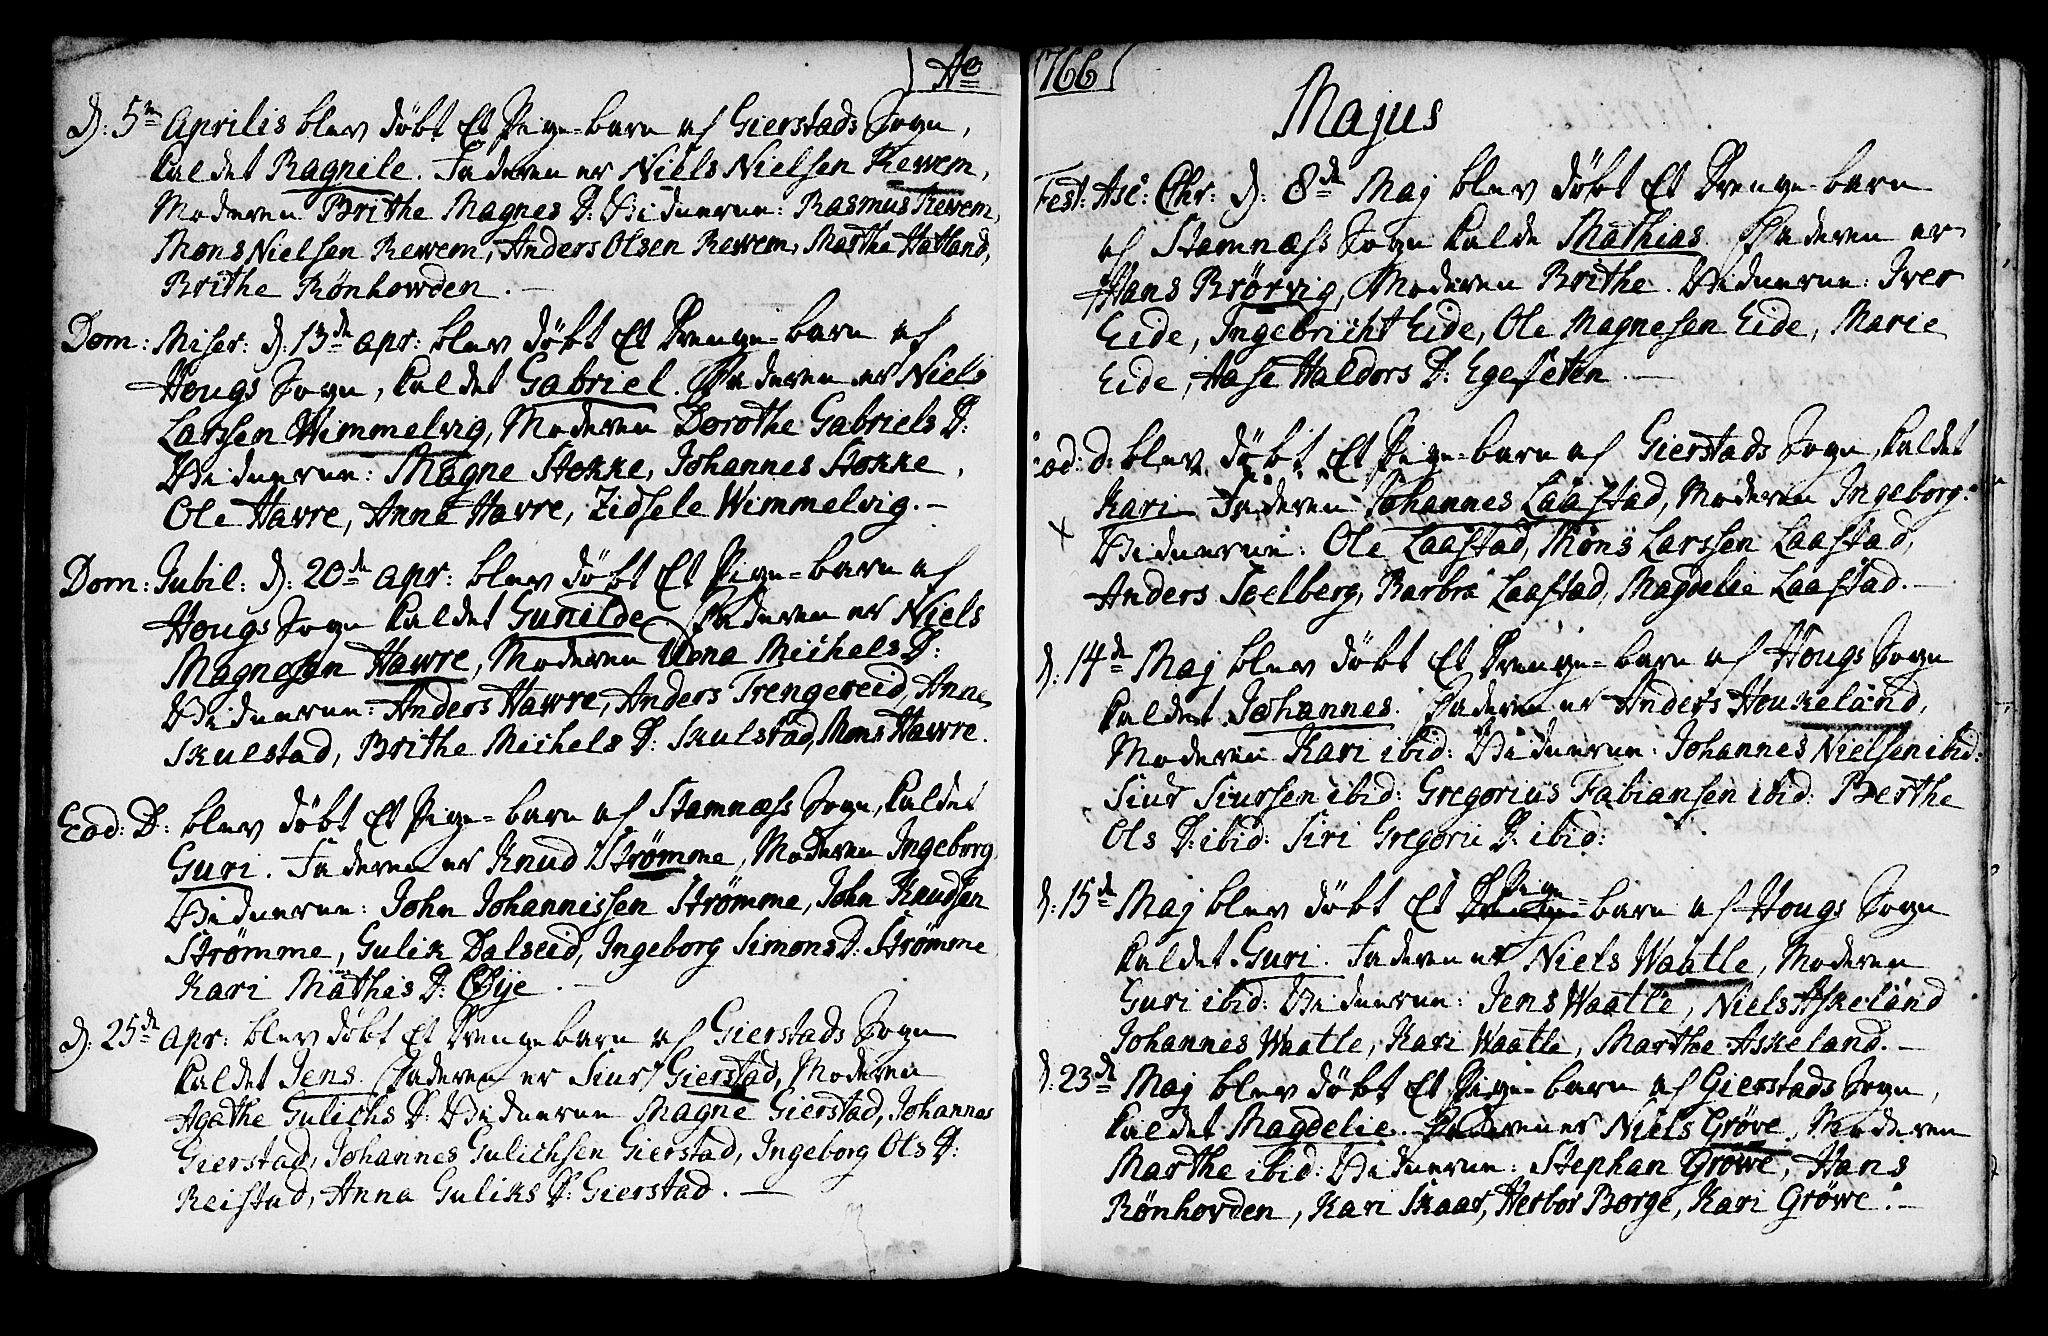 Ao
D: 5te Aprilis blev döbt Et Pige-barn af Gierstads Sogn,
kaldet Ragnile. Faderen er Niels Nielsen Rewem,
Moderen Brithe Magnes D: Vidnerne: Rasmus Rewem,
Mons Nielsen Rewem, Anders Olsen Rewem, Marthe Hatland,
Brithe Rönhowden.
Dom: Miser: d: 13de apr: blev döbt Et Drenge-barn af
Hougs Sogn, kaldet Gabriel. Faderen er Niels
Larssen Wimmelvig, Moderen Dorothe Gabriels D:
Vidnerne: Magne Stokke, Johannes Stokke,
Ole Havre, Anne Havre, Zidsele Wimmelvig.-
Dom: Jubil: d: 20de apr: blev döbt Et Pige-barn af
Hougs Sogn kaldet Gunilde Faderen er Niels
Magnesen Hawre, Moderen Michels D:
Vidnerne: Anders Hawre, Anders Trengereid, Anne
Skulstad, Brithe Michels D: Skulstad, Mons Hawre.
Eod: D: blev döbt Et Pige-barn af Stamnæss Sogn, kaldet
Guri. Faderen er Knud Strömme, Moderen Ingeborg
Vidnerne: John Johannissen Strömme, John Knudsen
Strömme, Gulik Dalseid, Ingeborg Simons D: Strömme
Kari Mathis D: Öye.-
D: 25de Apr: blev döbt Et Drengebarn af Gierstads Sogn
kaldet Jens. Faderen er Siur Gierstad, Moderen
Agathe Gulichs D: Vidnerne Magne Gierstad, Johannes
Gierstad, Johannes Gulichsen Gierstad, Ingeborg Ols D:
Reistad, Anna Guliks D: Gierstad.-
1766
Majus
Fest: Asc: Chr: D: 8de Maj blev döbt Et Drenge-barn
af Stamnæss Sogn kalde Mathias. Faderen er
Hans Brörvig, Moderen Brithe. Vidnerne: Iver
Eide, Ingebricht Eide, Ole Magnesen Eide, Marie
Eide, Aase Haldors D: Egeseten.-
eod: d: blev döbt Et Pige-barn af Gierstads Sogn, kaldet
Kari Faderen Johannes Laastad, Moderen Ingeborg.
x Vidnerne: Ole Laastad, Mons Larssen Laastad,
Anders Soelberg, Barbra Laastad, Magdelie Laastad.-
D: 14de Maj blev döbt Et Drenge-barn af Hougs Sogn
kaldet Johannes. Faderen er Anders Houkeland,
Moderen Kari ibid: Vidnerne: Johannes Nielsen ibid:
Siur Siurssen ibid: Gregorius Fabiansen ibid: Berthe
Ols D: ibid: Siri Gregorii D: ibid:
D: 15de Maj blev döbt Et Pige-barn af Hougs Sogn
kaldet Guri. Faderen er Niels Waatle, Moderen
Guri ibid: Vidnerne: Jens Waatle, Niels Askeland
Johannes Waatle, Kari Waatle, Marthe Askeland.-
D: 23de Maj blev döbt Et Pige-barn af Gierstads Sogn,
kaldet Magdelie. Faderen er Niels Gröve, Moderen
Marthe ibid: Vidnerne: Stephan Gröwe, Hans
Rönhovden, Kari Skaar, Herbor Borge, Kari Gröwe.-